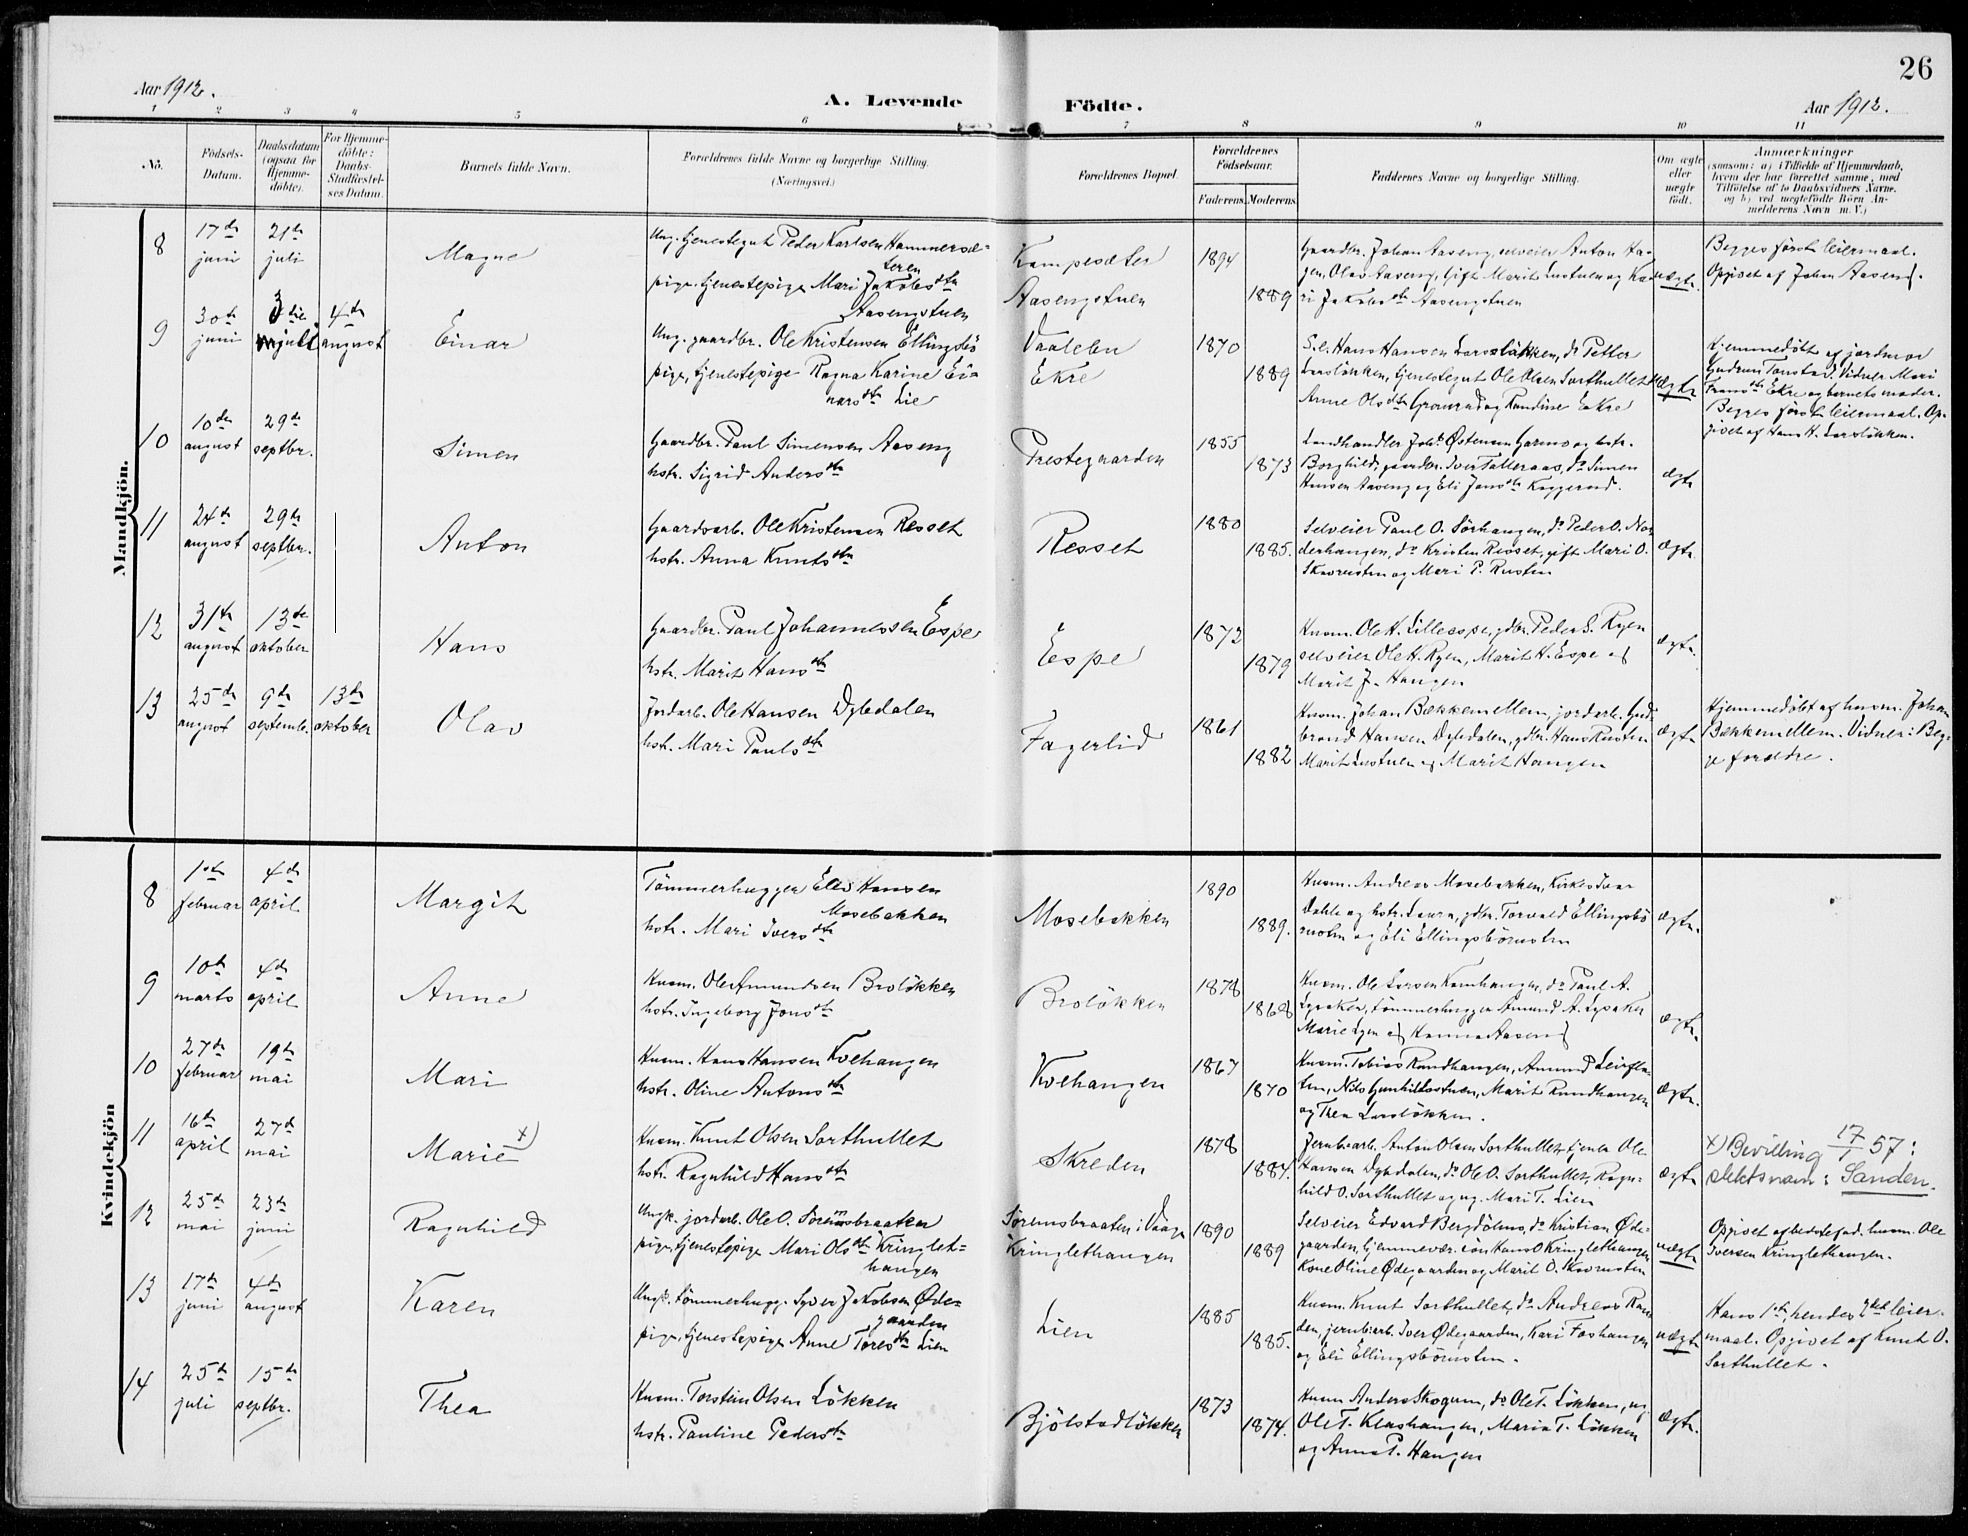 26
Aar 1912.
A. Levende
Födte.
Aar 1912.
1 2 3 4 5 6 7 8 9 10 11
No.
Födsels-
Datum.
Daabsdatum
(ogsaa for
Hjemme-
döbte).
For Hjemme-
döbte:
Daabs-
Stadfæstel-
ses Datum.
Barnets fulde Navn.
Forældrenes fulde Navne og borgerlige Stilling.
(Næringsvei.)
Forældrenes Bopæl.
Forældrenes
Födselsaar.
Faderens. Moderens.
Faddernes Navne og borgerlige Stilling.
Om ægte
eller
uægte
født.
Anmærkninger
(saasom: a) i Tilfælde af Hjemmedaab,
hvem der har forrettet samme, med
Tilföielse af to Daabsvidners Navne.
og b) ved uægtefödte Börn An-
melderens Navn m. V.)
Mandkjön.
8
17de juni
21de juli
Magne
Ung. tjenestegut Peder Karlsen Hammersæ-
teren
pige, tjenestepige Mari Jakobsdtr
Aasengstuen
Kampesæter
Aasengstuen
1894
1889
Gaardbr. Johan Aaseng, selveier Anton Aa-
gen, Olav Aaseng, Gift Marit Lustuen og Ka-
ri Jakobsdtr Aasengstuen
uægte
Begges første leiermaal.
Opgivet af Johan Aaseng.
9
30te juni
3die juli
4de august
Einar
Ung. gaardbr. Ole Kristensen Ellingsbö
pige, tjenestepige Ragna Karine Ei-
narsdtr Lie
Vaalebu
Ekre
1870
1889
S.e. Hans Hansen Larsløkken, do Petter
Larsløkken, tjenestegut Ole Olsen Sorthullet
Anne Olsdtr Gronrud og Randine Ekre
uægte
Hjemmedøbt af jordmor
Gudrun Tonstad. Vidner Mari
Fransdtr Ekre og barnets moder.
Begges første leiermaal. Op-
givet af Hans H. Larsløkken.
10
10de august
29de septbr.
Simen
Gaardbr. Paul Simensen Aaseng
hstr. Sigrid Andersdtr
Prestegaarden
1855
1873
Landhandler Johs. Østensen Garmo og hstr.
Borghild, gaardbr. Iver Tallerass, do Simen
Hansen Aaseng og Eli Jansdtr Kaggerud.
ægte
11
24de august
29de septbr.
Anton
Gaardsarb. Ole Kristensen Resset
hstr. Anna Knutsdtr
Resset
1880
1885.
Selveier Paul O. Sørhaugen, do Peder O. Nor-
derhaugen, do Kristen Resset, gift Mari O.
Skaarusten og Mari P. Rusten
ægte.
12
31te august
13de oktober
Hans
Gaardbr. Paul Johannessen Espe
hstr. Marit Hansdtr
Espe
1872
1879
Husm. Ole H. Lilleespe, gdbr. Peder S. Ryen
selveier Ole H. Ryen, Marit H. Espe og
Marit J. Haugen
ægte.
13
25de august
9de septembr.
13de oktober
Olav
Jordarb. Ole Hansen Dybdalen
hstr. Mari Paulsdtr
Fagerlid
1861
1882
Husm. Johan Bækkemellem, jordarb. Gud-
brand Hansen Dybdalen, gdbr. Hans Rusten
Marit Lustuen og Marit Haugen
ægte
Hjemmedöbt af husm. Johan
Bækkemellem. Vidner: Beg-
ge forældre.
Kvindekjön
8
1ste februar
4de april
Margit
Tømmerhugger Ellev Hansen
Mosebakken
hstr. Mari Iversdtr
Mosebakken
1890
1889.
Husm. Andreas Mosebakken, Kirkes. Ivar
Dahle og hstr. Laura, gdbr. Torvald Ellingsbø
rusten og Eli Ellingsbørusten
ægte.
9
10de marts
4de april
Anne
Husm. Ole Amundsen Broløkken
hstr. Ingeborg Jonsdtr
Broløkken
1878
1868
Husm. Ole Larsen Kamhaugen, do Paul A.
Lysaker, tømmerhugger Amund A. Lysaker
Marie Lyen og Hanna Aaseng
ægte.
10
27de februar
19de mai
Mari
Husm. Hans Hansen Kvehaugen
hstr. Oline Antonsdtr
Kvehaugen
1867
1870
Husm. Tobias Rundhaugen, Amund Leirfla-
ten, Nils Gunhildsstuen, Marit Rundhaugen
og Thea Larsløkken.
ægte.
11
16de april
27de mai
Marie x)
Husm. Knut Olsen Sorthullet
hstr. Ragnhild Hansdtr
Skreden
1878
1884.
Jernbarb. Anton Olsen Sorthullet, tjener Ole
Hansen Dybdalen, do Ole O. Sorthullet, Ragn-
hild O. Sorthullet og ug. Mari T. Lien
ægte
x) Bevilling 17/1 57:
slektsnavn: Sanden.
12
25de mai
23de juni
Ragnhild
Ungk. jordarb. Ole O. Sörumsbraaten
pige, tjenestepige Mari Olsdtr Kringlet-
haugen
Sörumsbraaten i Vaage
Kringlethaugen
1890
1889
Selveier Edvard Bergdølmo, do Kristian Øde-
gaarden, hjemmevær. søn Hans O Kringlethaugen
Kone Oline Ødegaarden og Marit O. Skaarusten
uægte
Opgivet af bedstefad. husm. Ole
Iversen Kringlethaugen.
13
17de juni
4de august
Karen
Ungk. tømmerhugg. Syver Jakobsen Øde-
gaarden
pige, tjenestepige Anne Toresdtr Lien
Lien
1885
1885.
Husm. Knut Sorthullet, do Andreas Run-
den, jernbarb. Iver Ødegaarden, Kari Foshaugen
og Eli Ellingsbørusten.
uægte
Hans 1ste, hendes 2det leier-
maal. Opgivet af Knut O.
Sorthullet.
14
25de juli
15de septbr.
Thea
Husm. Torstein Olsen Løkken
hstr. Pauline Pedersdtr
Bjölstadløkken
1873
1874.
Husm Anders Skogum, do Ole T. Løkken, ug
Ole T. Klashaugen, Maria T. Løkken
og Anna P. Haugen
ægte.